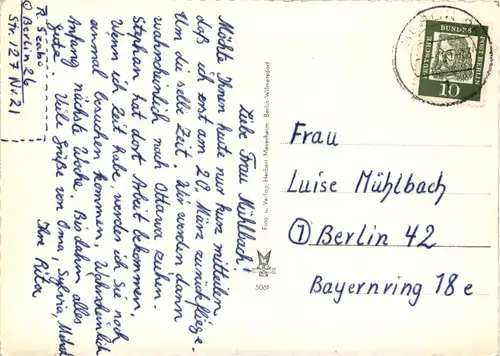 R. Szabó
① Berlin 26
Str. 127 N. 21
Liebe Frau Mühlbach!
Möchte Ihnen heute nur kurz mitteilen,
daß ich erst am 20. März zurückfliege.
Um die selbe Zeit. Wir werden dann
wahrscheinlich nach Ottawa ziehen.
Stephan hat dort Arbeit bekommen.
Wenn ich Zeit habe, werden ich Sie noch
einmal besuchen kommen. Wahrscheinlich
Anfang nächste Woche. Bis dahin alles
Gute. Viele Grüße von Oma, Sylvia,
Ihre Rita
Foto u. Verlag Herbert Meyerheim, Berlin-Wilmersdorf
5061
DEUTSCHE BUNDESPOST BERLIN
10
Frau
Luise Mühlbach
① Berlin 42
Bayernring 18 e